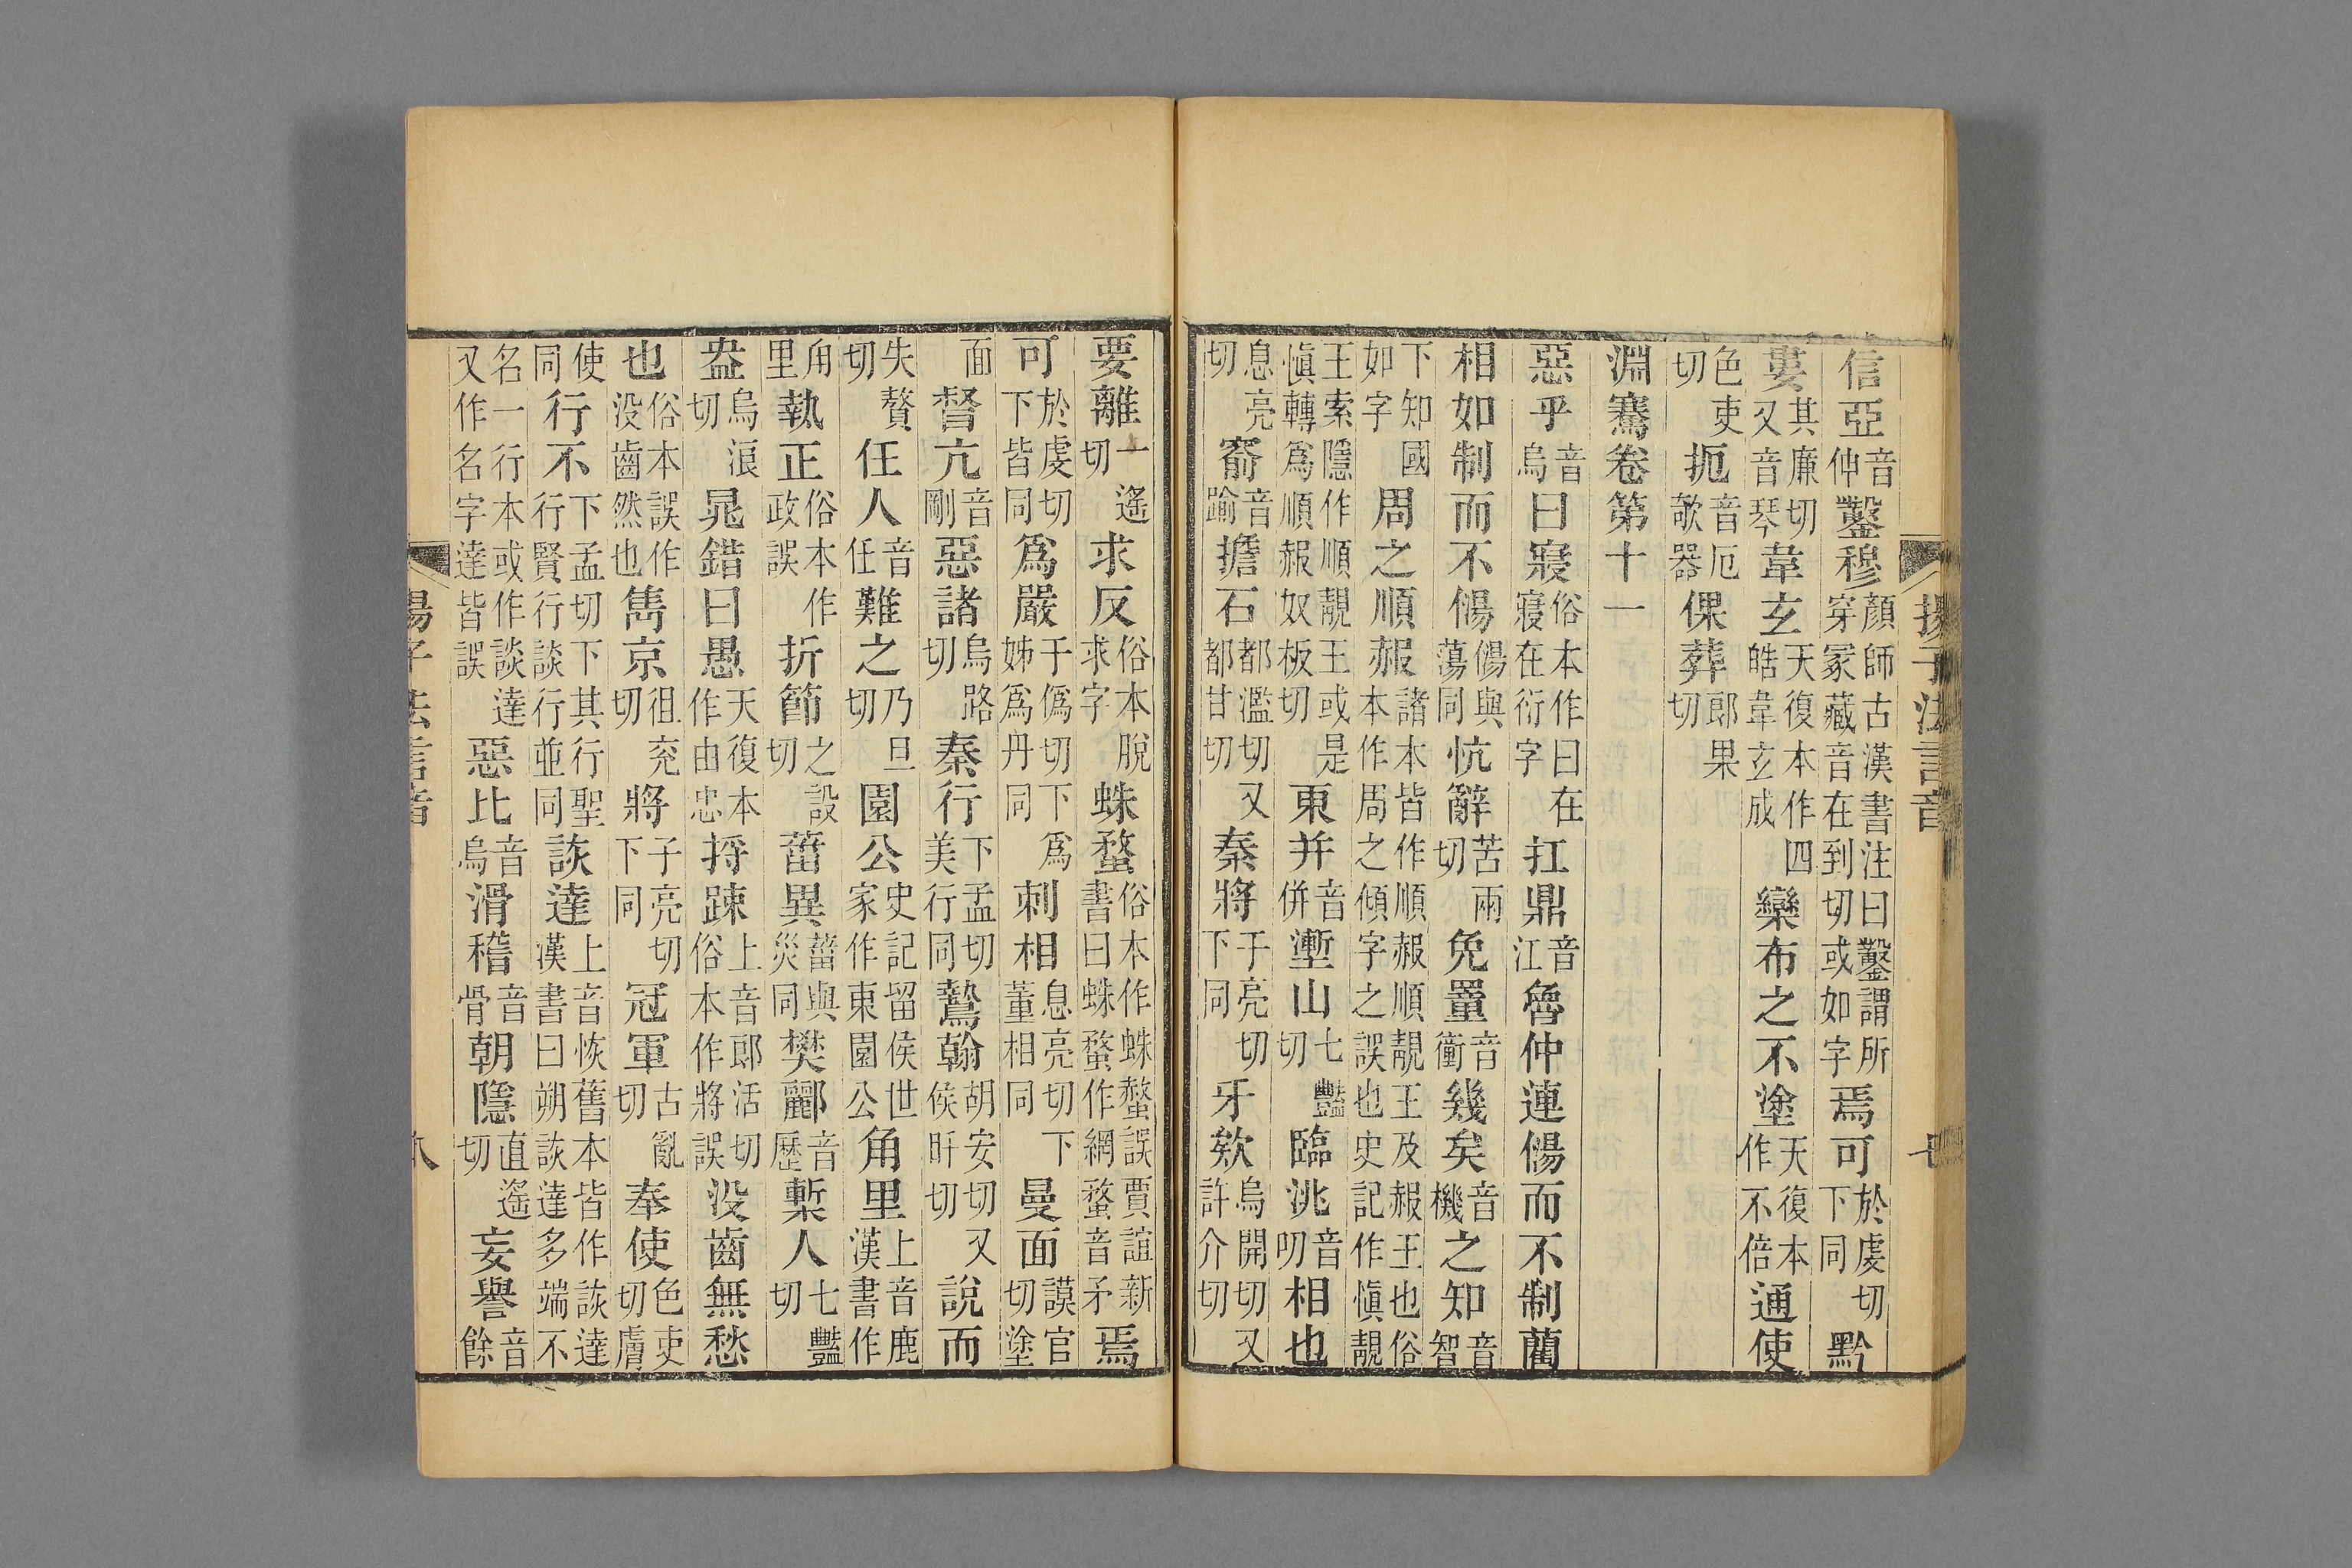 揚子法言音 七
信亞音仲鑿穆顏師古漢書注曰鑿謂所穿冢藏音在到切或如字焉可於虔切下同黔
婁其廉切又音琴韋玄天復本作四皓韋玄成欒布之不塗天復本作不倍通使
色吏切扼音厄欹器倮葬郎果切
淵騫卷第十一
惡乎音烏曰寢俗本作曰在寢在衍字扛鼎音江魯仲連偒而不制藺
相如制而不偒偒與蕩同忼辭苦兩切免罿音衝幾矣音機之知音智
下知國如字周之順赧諸本皆作順赧順靚王及赧王也俗本作周之傾字之誤也史記作慎靚
王索隱作順靚王或是慎轉爲順赧奴板切東并音併塹山七豔切臨洮音叨相也
息亮切窬音踰擔石都濫切又都甘切秦將子亮切下同牙欸烏開切又許介切
要離一遙切求反俗本脫求字蛛蝥俗本作蛛螯誤賈誼新書曰蛛蝥作網蝥音矛焉
可於虔切下皆同爲嚴于僞切下爲姊爲丹同刺相息亮切下董相同曼面謨官切塗
面督亢音剛惡諸烏路切秦行下孟切美行同鷙翰胡安切又侯旰切說而
失贅切任人音任難之乃旦切園公史記留侯世家作東園公角里上音鹿漢書作
角里執正俗本作政誤折節之設切菑異菑與災同樊酈音歷槧人七豔切
盎烏浪切晁錯曰愚天復本作由忠捋踈上音郎活切俗本作將誤没齒無愁
也俗本誤作没齒然也雋京徂兖切將子亮切下同冠軍古亂切奉使色吏切膚
使同行不下孟切下其行聖行賢行談行並同詼達上音恢舊本皆作詼達漢書曰朔詼達多端不
名一行本或作談達又作名字達皆誤惡比音烏滑稽音骨朝隱直遙切妄譽音餘
揚子法言音 八